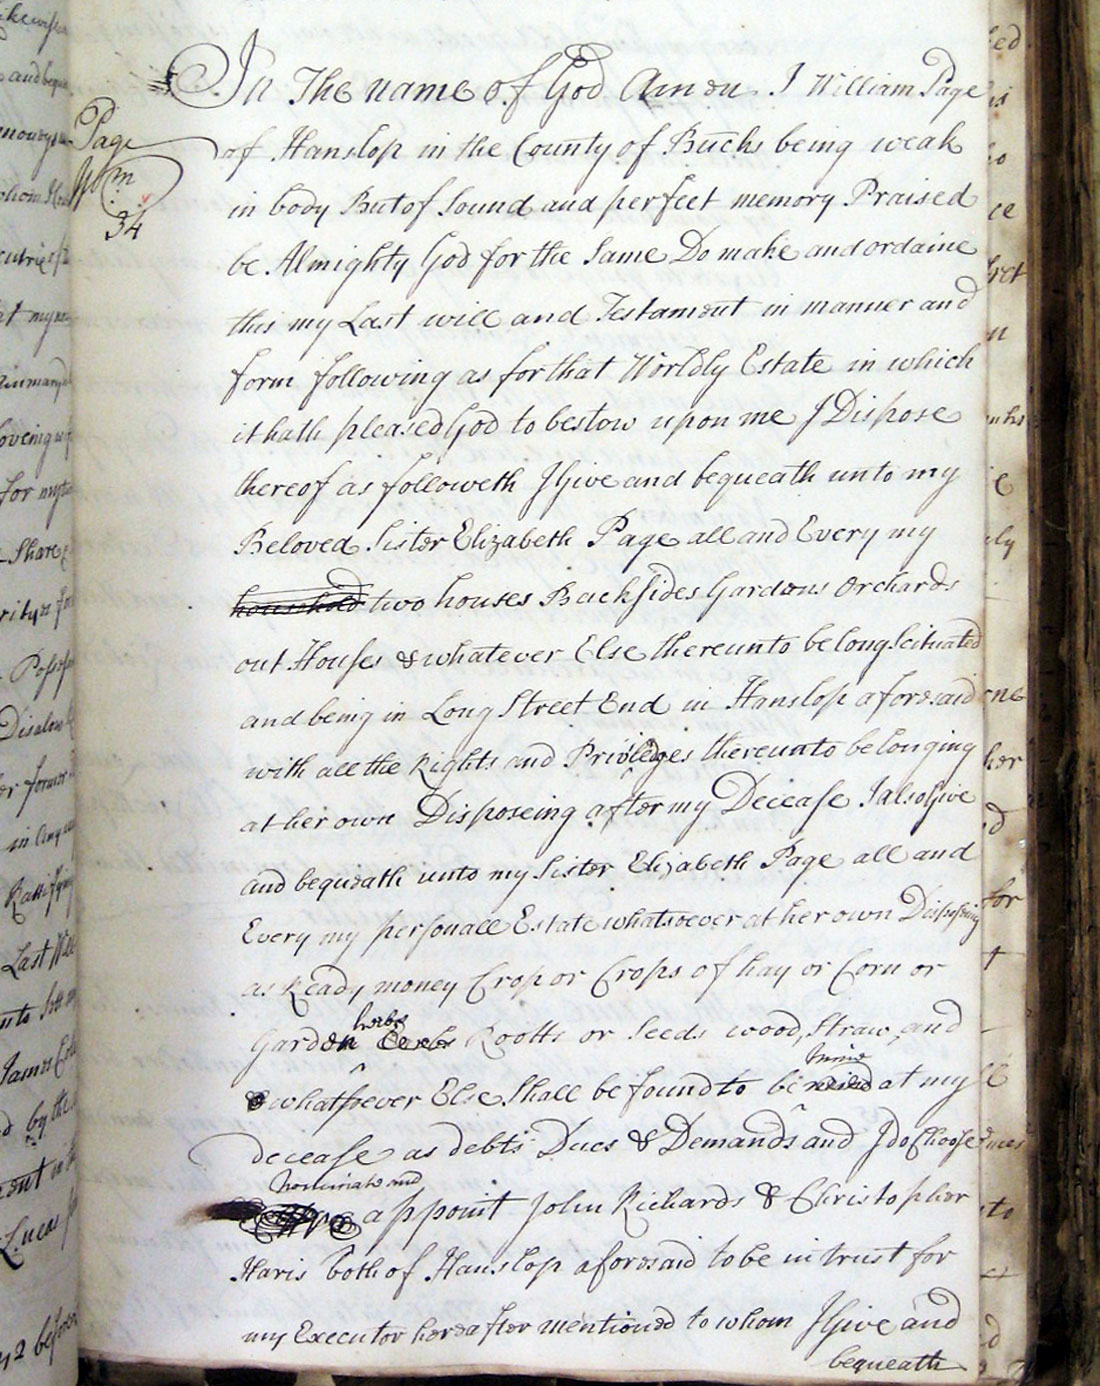 Page
Wm
34
In The name of God Amen I William Page
of Hanslop in the County of Bucks being weak
in body But of Sound and perfect memory Praised
be Almighty God for the Same Do make and ordaine
this my Last will and Testament in manner and
form following as for that Worldly Estate in which
it hath pleased God to bestow upon me I Dispose
thereof as followeth I Give and bequeath unto my
Beloved Sister Elizabeth Page all and Every my
household two houses Backsides Gardens Orchards
out Houses & whatever Else thereunto belong Scituated
and being in Long Street End in Hanslop aforesaid
with all the Rights and Priviledges thereunto belonging
at her own Disposeing after my Decease I also Give
and bequeath unto my Sister Elizabeth Page all and
Every my personall Estate whatsoever at her own Disposeing
as Ready money Crop or Crops of hay or Corn or
herbs
Garden Rootts or Seeds wood, Straw, and
mine
& whatsoever Else Shall be found to be at my
decease as debts Dues & Demands and I do Choose
Nominate and
appoint John Richards & Christopher
Haris both of Hanslop aforesaid to be in trust for
my Executor hereafter mentioned to whom I Give and
bequeath